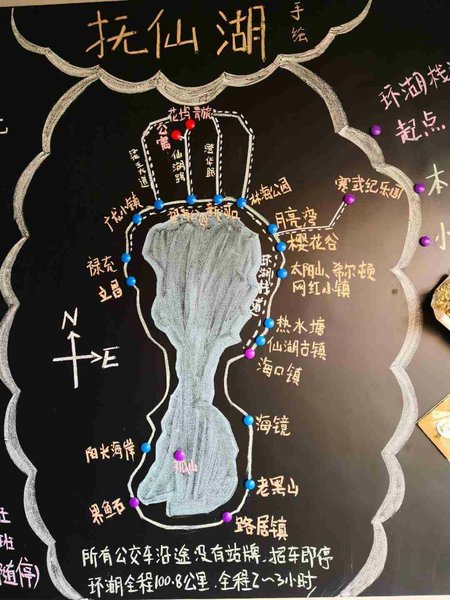 抚仙湖
手绘
环湖栈
起点
花均青旅
公寓
仙湖路
澄华路
广龙小镇
林海公园
寒武纪乐园
本
月亮湾
樱花谷
小
禄充
立昌
环湖栈道
太阳山、希尔顿
网红小镇
热水塘
仙湖古镇
海口镇
N
E
海镜
阳光海岸
孤山
老黑山
果鱼石
路居镇
站
随停)
所有公交车沿途没有站牌，招车即停
环湖全程100.8公里，全程2~3小时